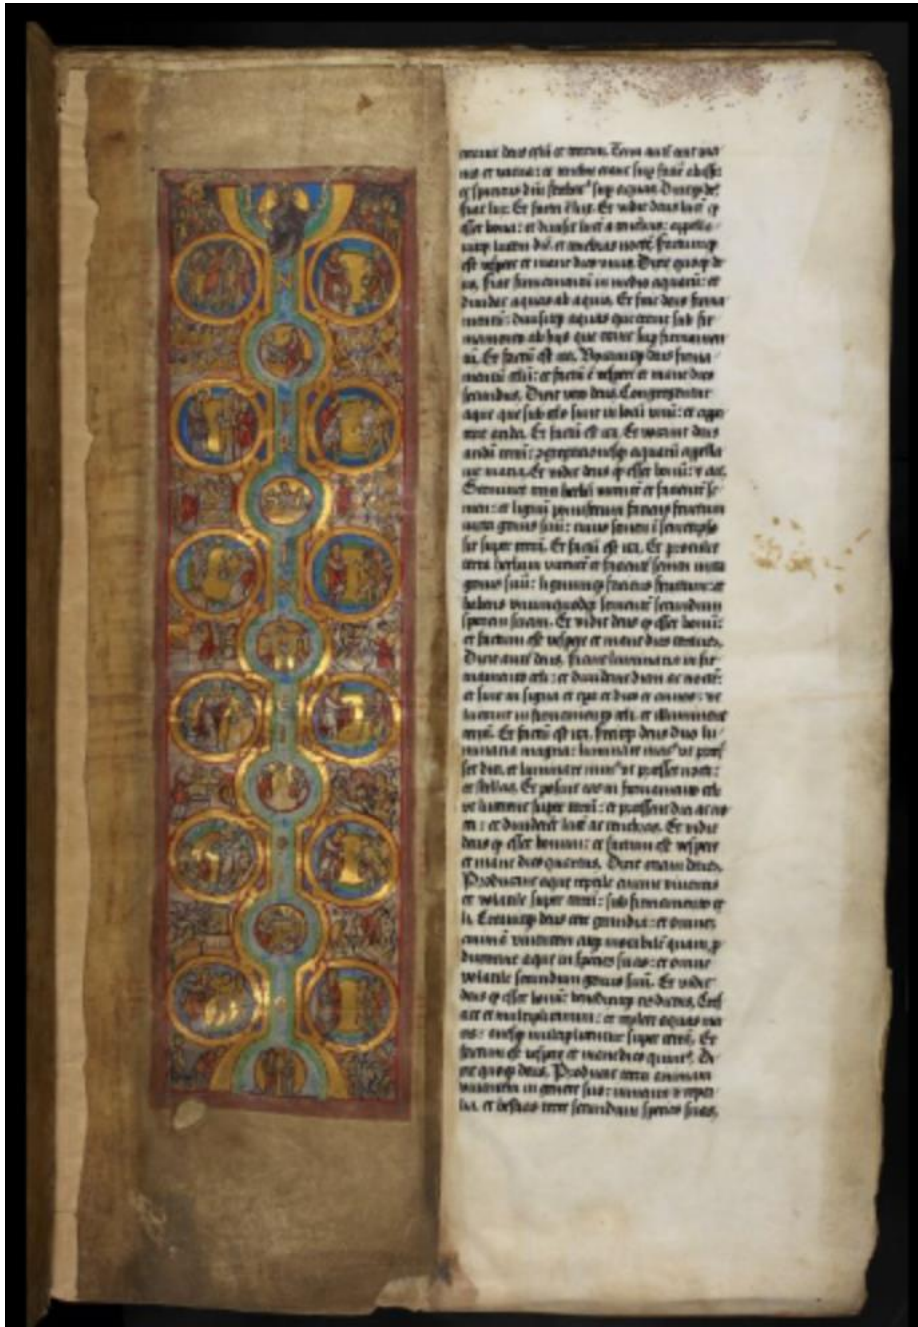 creauit deus celū et terram. Terra autē erat ina
nis et uacua: et tenebre erant sup faciē abissi:
et spiritus dñi ferebat͛ sup aquas. Dixitq; deꝰ
fiat lux. Et facta ē lux. Et vidit deus lucē ꝙ
esset bona: et diuisit lucē a tenebris: appella
uitq; lucem diē. et tenebras noctē. factumq;
est vespere et mane dies vnus. Dixit quoq; de
us. fiat firmamentū in medio aquarū: et
diuidat aquas ab aquis. Et fecit deus firma
mentū: diuisitq; aquas que erant sub fir
mamento ab hijs que erant sup firmamen
tū. Et factū est ita. Vocauitq; deus firma
mentū celū: et factū ē vespere et mane dies
secundus. Dixit vero deus. Congregentur
aque que sub celo sunt in locū vnū: et appa
reat arida. Et factū est ita. Et vocauit deus
aridā terrā: ꝯgregacionesq; aquarū appella
uit maria. Et vidit deus ꝙ esset bonū: et ait.
Germinet terra herbā uirentē et facientē se
men: et lignū pomiferum faciens fructum
iuxta genus suū: cuius semen ī semetipso
sit super terrā. Et factū est ita. Et protulit
terra herbam virentē et faciente semen iuxta
genus suū: lignumq; faciens fructum: et
habens vnumquodq; sementē secundum
speciem suam. Et vidit deus ꝙ esset bonū:
et factum est vespere et mane dies tercius.
Dixit autē deus. fiant luminaria in fir
mamento celi: et diuidant diem ac noctē:
et sint in signa et tpa et dies et annos: vt
luceant in firmamento celi. et illuminent
terrā. Et factū est ita. fecitq; deus duo lu
minaria magna: luminare maiꝰ vt pres
set diei. et luminare minꝰ vt presset nocti:
et stellas. Et posuit eas in firmamento celi
vt lucerent super terrā: et pressent diei ac noc
ti: et diuiderēt lucē ac tenebras. Et vidit
deus ꝙ esset bonum: et factum est vespere
et mane dies quartus. Dixit etiam deus.
Producant aque reptile anime viuentis
et volatile super terrā: sub firmamento ce
li. Creauitq; deus cete grandia: et omnem
animā viuentem atq; motabilē quam ꝓ
duxerant aque in species suas: et omne
volatile secundum genus suū. Et vidit
deus ꝙ esset bonū: benedixitq; eis dicens. Cres
cite et multiplicamini: et replete aquas ma
ris: auesq; multiplicentur super terrā. Et
factum est vespere et mane dies quintꝰ. Di
xit quoq; deus. Producat terra animam
viuentem in genere suo: iumenta et repti
lia. et bestias terre secundum species suas.